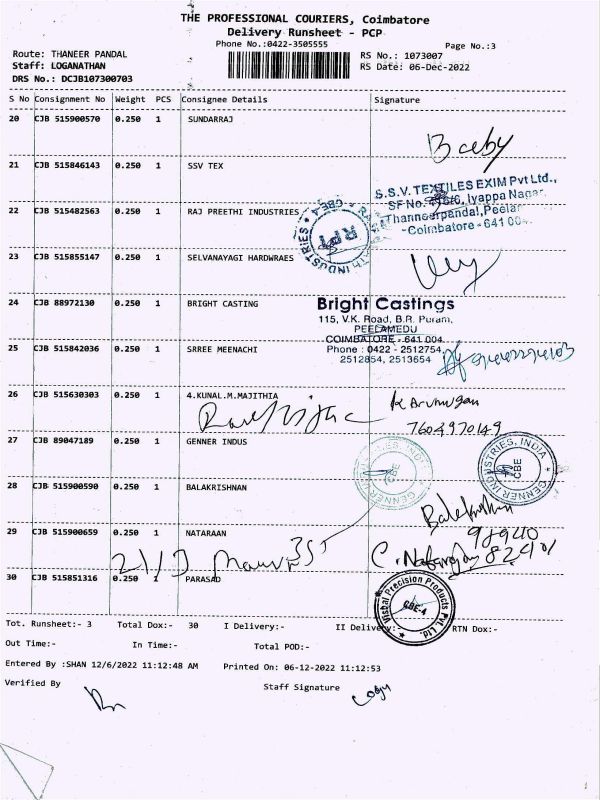 THE PROFESSIONAL COURIERS, Coimbatore
Delivery Runsheet - PCP
Phone No.:0422-3505555
Page No.:3
Route: THANEER PANDAL
RS No.: 1073007
Staff: LOGANATHAN
RS Date: 06-Dec-2022
DRS No.: DCJB107300703
S No Consignment No Weight PCS Consignee Details Signature
20 CJB 515900570 0.250 1 SUNDARRAJ
Baeby
21 CJB 515846143 0.250 1 SSV TEX
S.S.V. TEXTILES EXIM Pvt Ltd.,
SF No. Iyappa Nagar,
Thanneerpandal, Peelar
Coimbatore - 641 00
22 CJB 515482563 0.250 1 RAJ PREETHI INDUSTRIES
RPI
INDUSTRIES
23 CJB 515855147 0.250 1 SELVANAYAGI HARDWRAES
24 CJB 88972130 0.250 1 BRIGHT CASTING
Bright Castings
115, V.K. Road, B.R. Puram,
PEELAMEDU
COIMBATORE - 641 004.
Phone : 0422 - 2512754,
2512854, 2513654
25 CJB 515842036 0.250 1 SRREE MEENACHI
26 CJB 515630303 0.250 1 4.KUNAL.M.MAJITHIA
K Arumugan
7604970149
27 CJB 89047189 0.250 1 GENNER INDUS
GENNER INDUSTRIES, INDIA
CBE
GENNER INDUSTRIES, INDIA
CBE
28 CJB 515900590 0.250 1 BALAKRISHNAN
Balakrishnan
29 CJB 515900659 0.250 1 NATARAAN
98940
82401
C. Natarajan
30 CJB 515851316 0.250 1 PARASAD
Vishal Precision Products Pvt. Ltd.
CBE-4
Tot. Runsheet:- 3 Total Dox:- 30 I Delivery:- II Delivery:- RTN Dox:-
Out Time:- In Time:- Total POD:-
Entered By :SHAN 12/6/2022 11:12:48 AM Printed On: 06-12-2022 11:12:53
Verified By Staff Signature